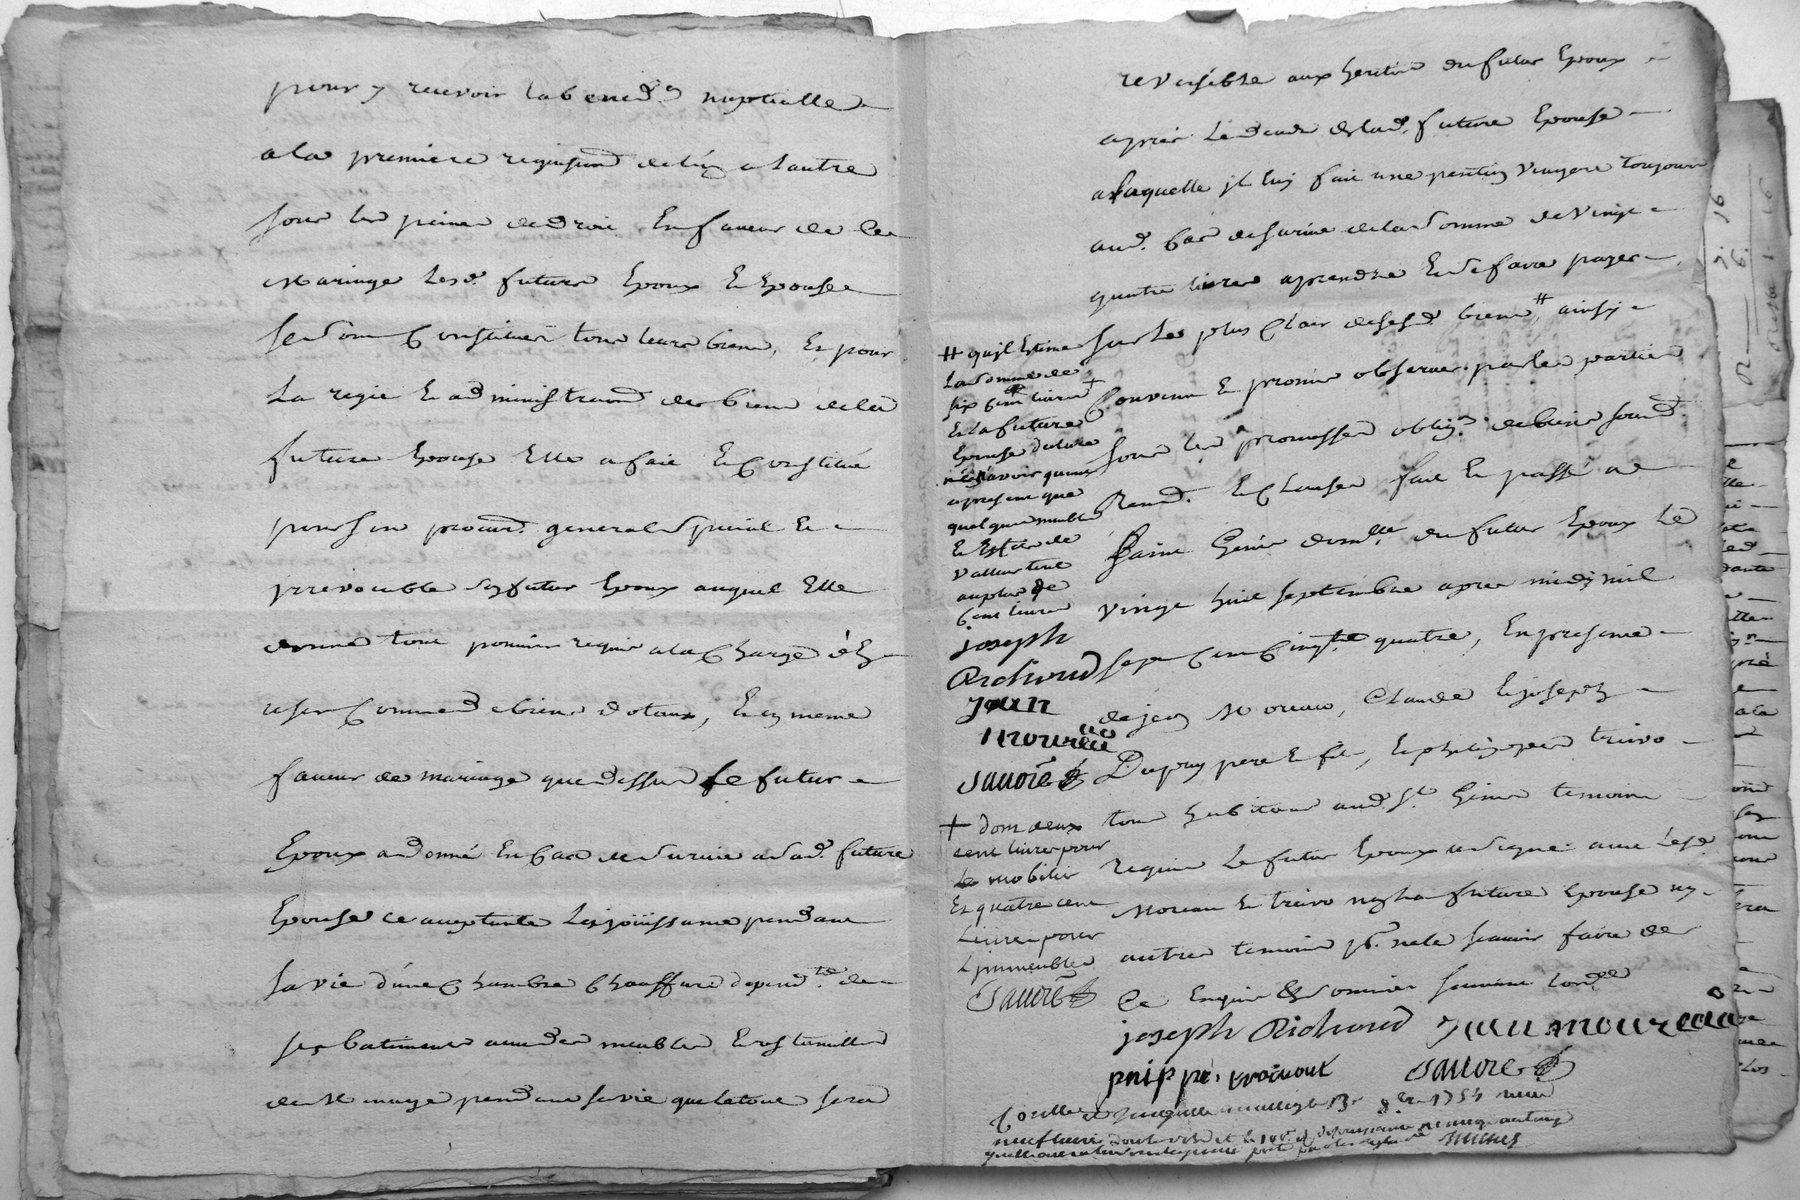 pour y recevoir la bened.on nuptialle
a la premiere requisi.on de lún a lautre
sous les peines de droit En faveur de Ce
Mariage Lesd. futurs Epoux Et Epouse
se sont Constitués tous leurs biens, Et pour
La regie Et administra.on des biens de la
future Epouse Elle a fait Et Constitué
pour son procur. general Special Et
yrrevocable sonfutur Epoux auquel Elle
donne tout pouvoir requis a la Charge d'En
et biens dotaux, Et en meme
faveur de mariage que dessus Le futur
Epoux a donné En Cas de Survie a Sad. future
Epouse ce acceptante La joüissance pendant
sa vie d'une Chambre Chauffure depend.te de
ses batiments avec des meubles Et ustencilles
de Menage pendant sa vie que le tout sera
reversible aux heritiers du futur Epoux
apres Le deces de lad. future Epouse
a laquelle jl luy fait une pention viagere toujours
aud. Cas de survie de la Somme de Vingt
quatre livres a prendre Et Se faire payer
sur Les plus Clair de sesd. biens, # ainsy
Convenu Et promis observer par les parties
sous les promesses oblig.on de biens soumd.
Renond. Et Clauses fait Et passé a
Saint Genis domille du futur Epoux Le
vingt huit septembre apres midy mil
sept Cent Cinq.te quatre, En presence
de jean Moreau, Claude Et joseph
Dupuy pere Et fils, Et philippe trivo
tous habitans aud. St. Genis temoins
requis Le futur Epoux a Signé avec Lesd.
Moreau Et trivo non La future Epouse ny
autres temoins p.r ne le scavoir faire de
Ce Enquis Et Sommés suivant Lord.ce
# quil Estime
La Somme de
six Cent livres +
Et la future
Epouse declare
n'avoir quant
apresent que
quelques meubles
Et Effets de
valleur tout
au plus de
Cent livres
joseph
Richoud
jean
moureau
Sauore
+ dont deux
cent livres pour
Les mobilier
Et quatre cent
Livres pour
Limmeubles
Sauore
joseph Richoud jean moureau
phippe trouvout Sauore